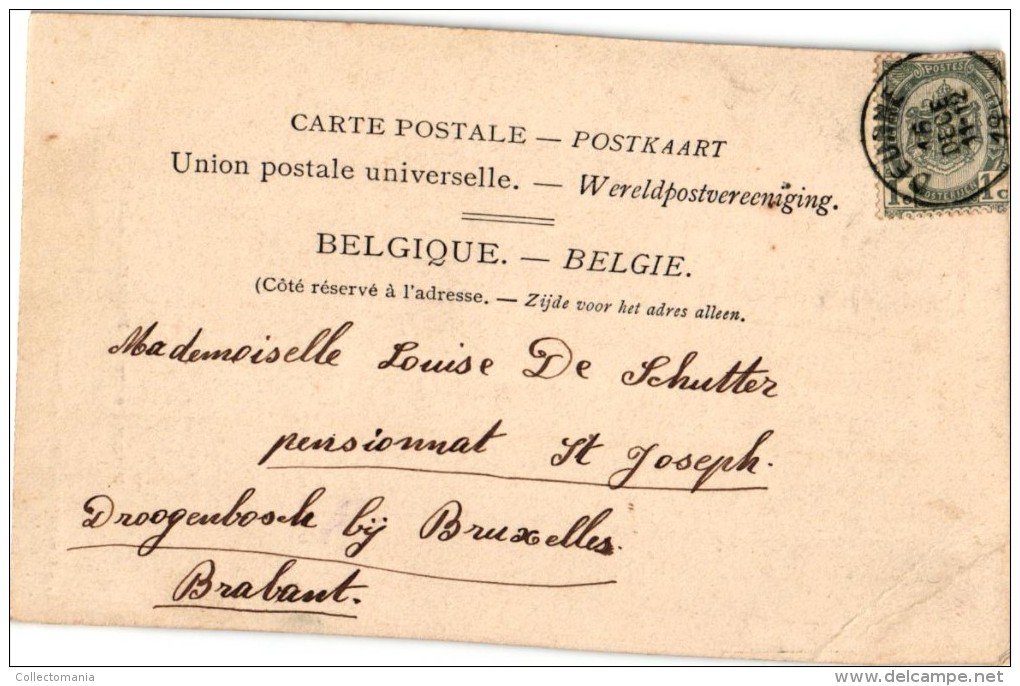 CARTE POSTALE — POSTKAART
Union postale universelle. — Wereldpostvereeniging.
BELGIQUE. — BELGIE.
(Côté réservé à l'adresse. — Zijde voor het adres alleen.
POSTES
1c 1c
POSTERIJEN
DEURNE
DECE
11-12
Mademoiselle Louise De Schutter
pensionnat St Joseph.
Droogenbosch bij Bruxelles.
Brabant.
Collectomania
www.delcampe.net